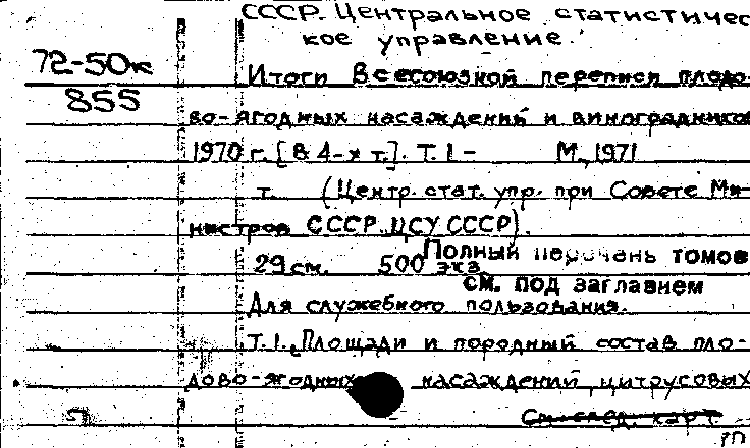 СССР. Центральное статистичес
кое управление.
72-50к
855
Итоги Всесоюзной переписи плодо-
во-ягодных насаждений и виноградников
1970 г. [В 4-х т.]. Т. 1- М., 1971
т. (Центр. стат. упр. при Совете Ми-
нистров СССР. ЦСУ СССР).
29 см. 500 экз.
Полный перечень томов
см. под заглавием
Для служебного пользования.
Т. 1. Площади и породный состав пло-
дово-ягодных насаждений, цитрусовых
См. след. карт.